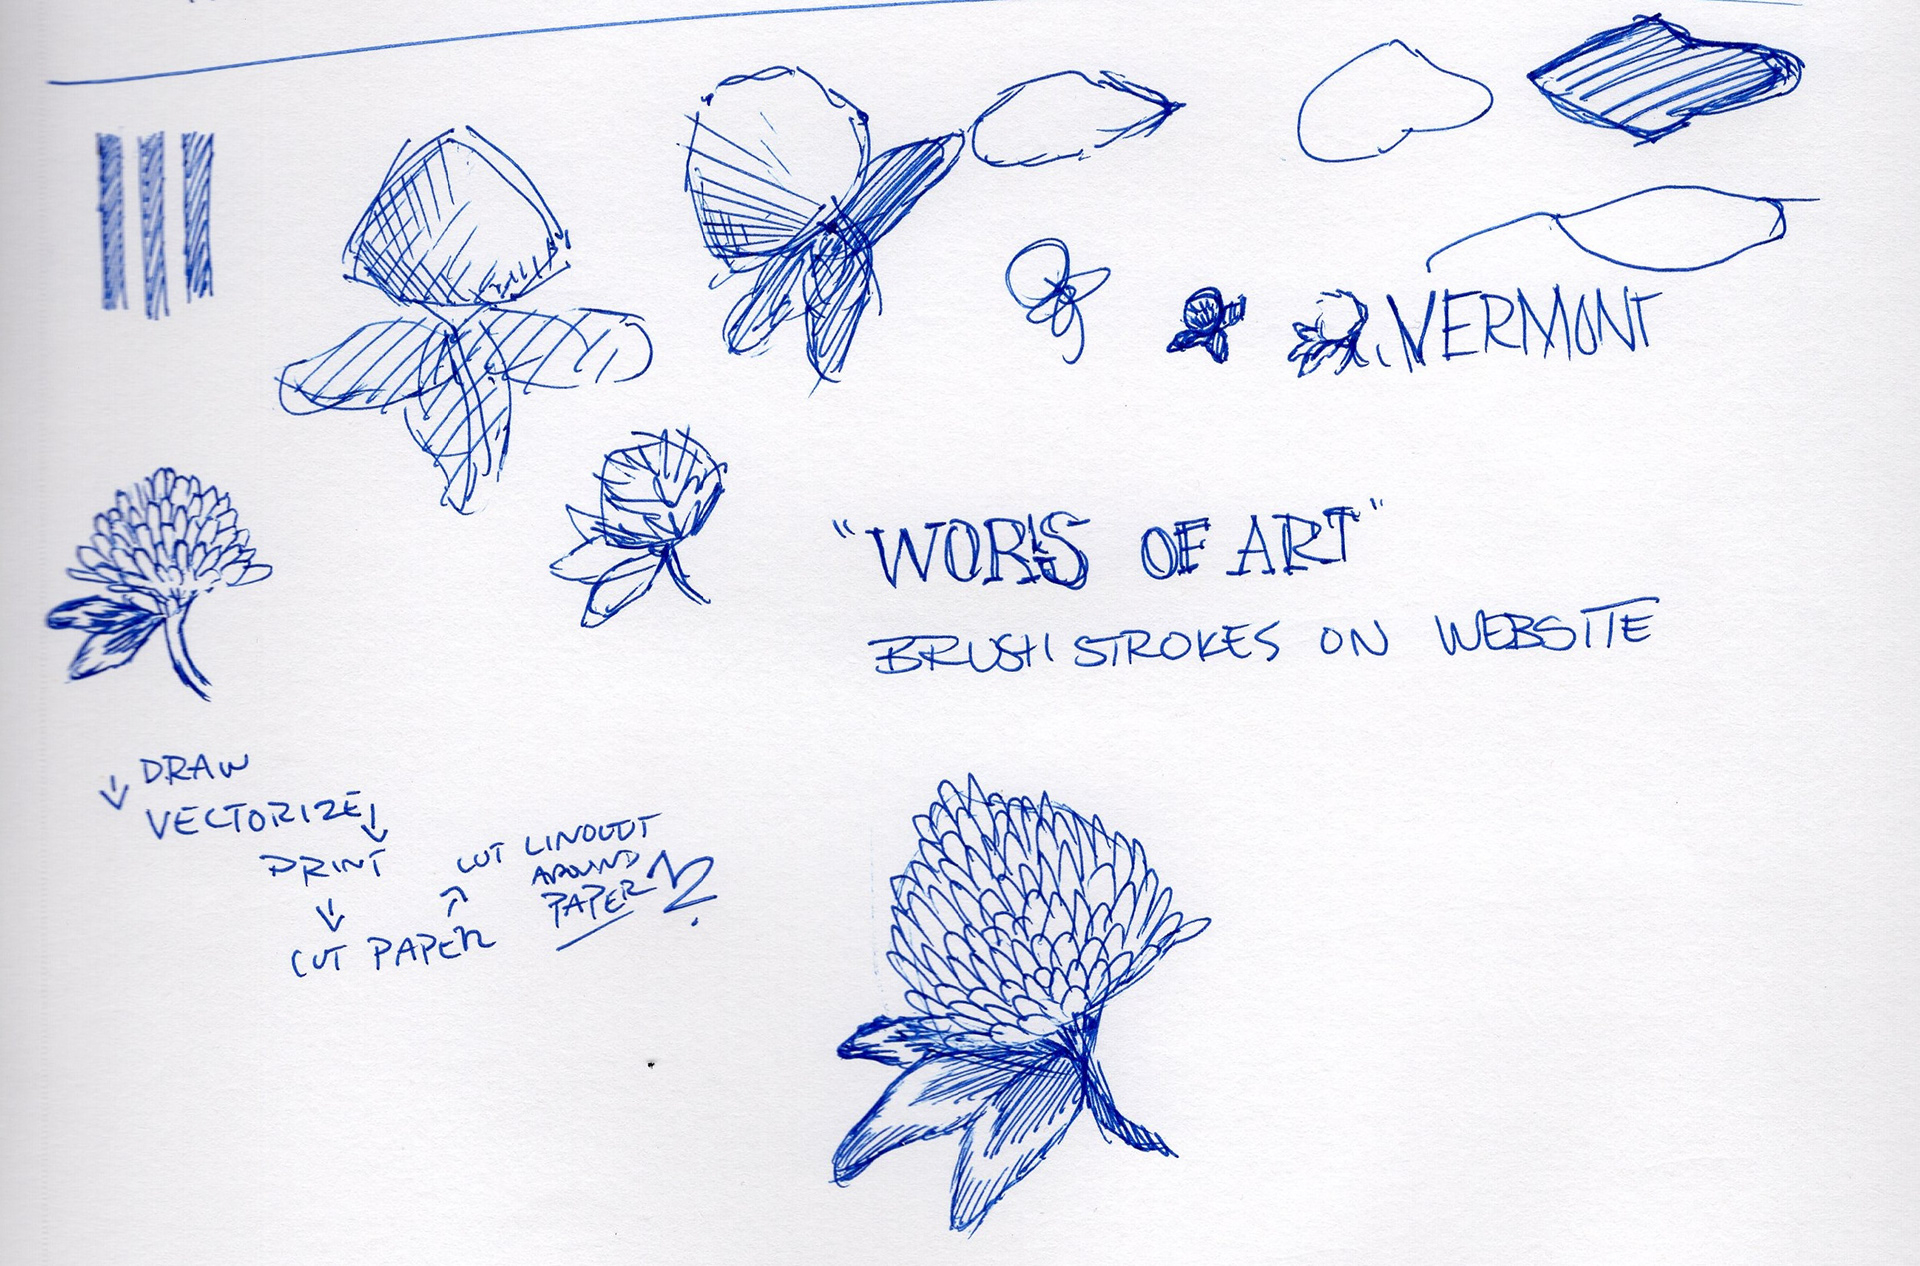 VERMONT
"WORKS OF ART"
BRUSH STROKES ON WEBSITE
↓ DRAW
VECTORIZE ↓
PRINT
↓
CUT PAPER
↑
CUT LINOCUT
AROUND
PAPER?